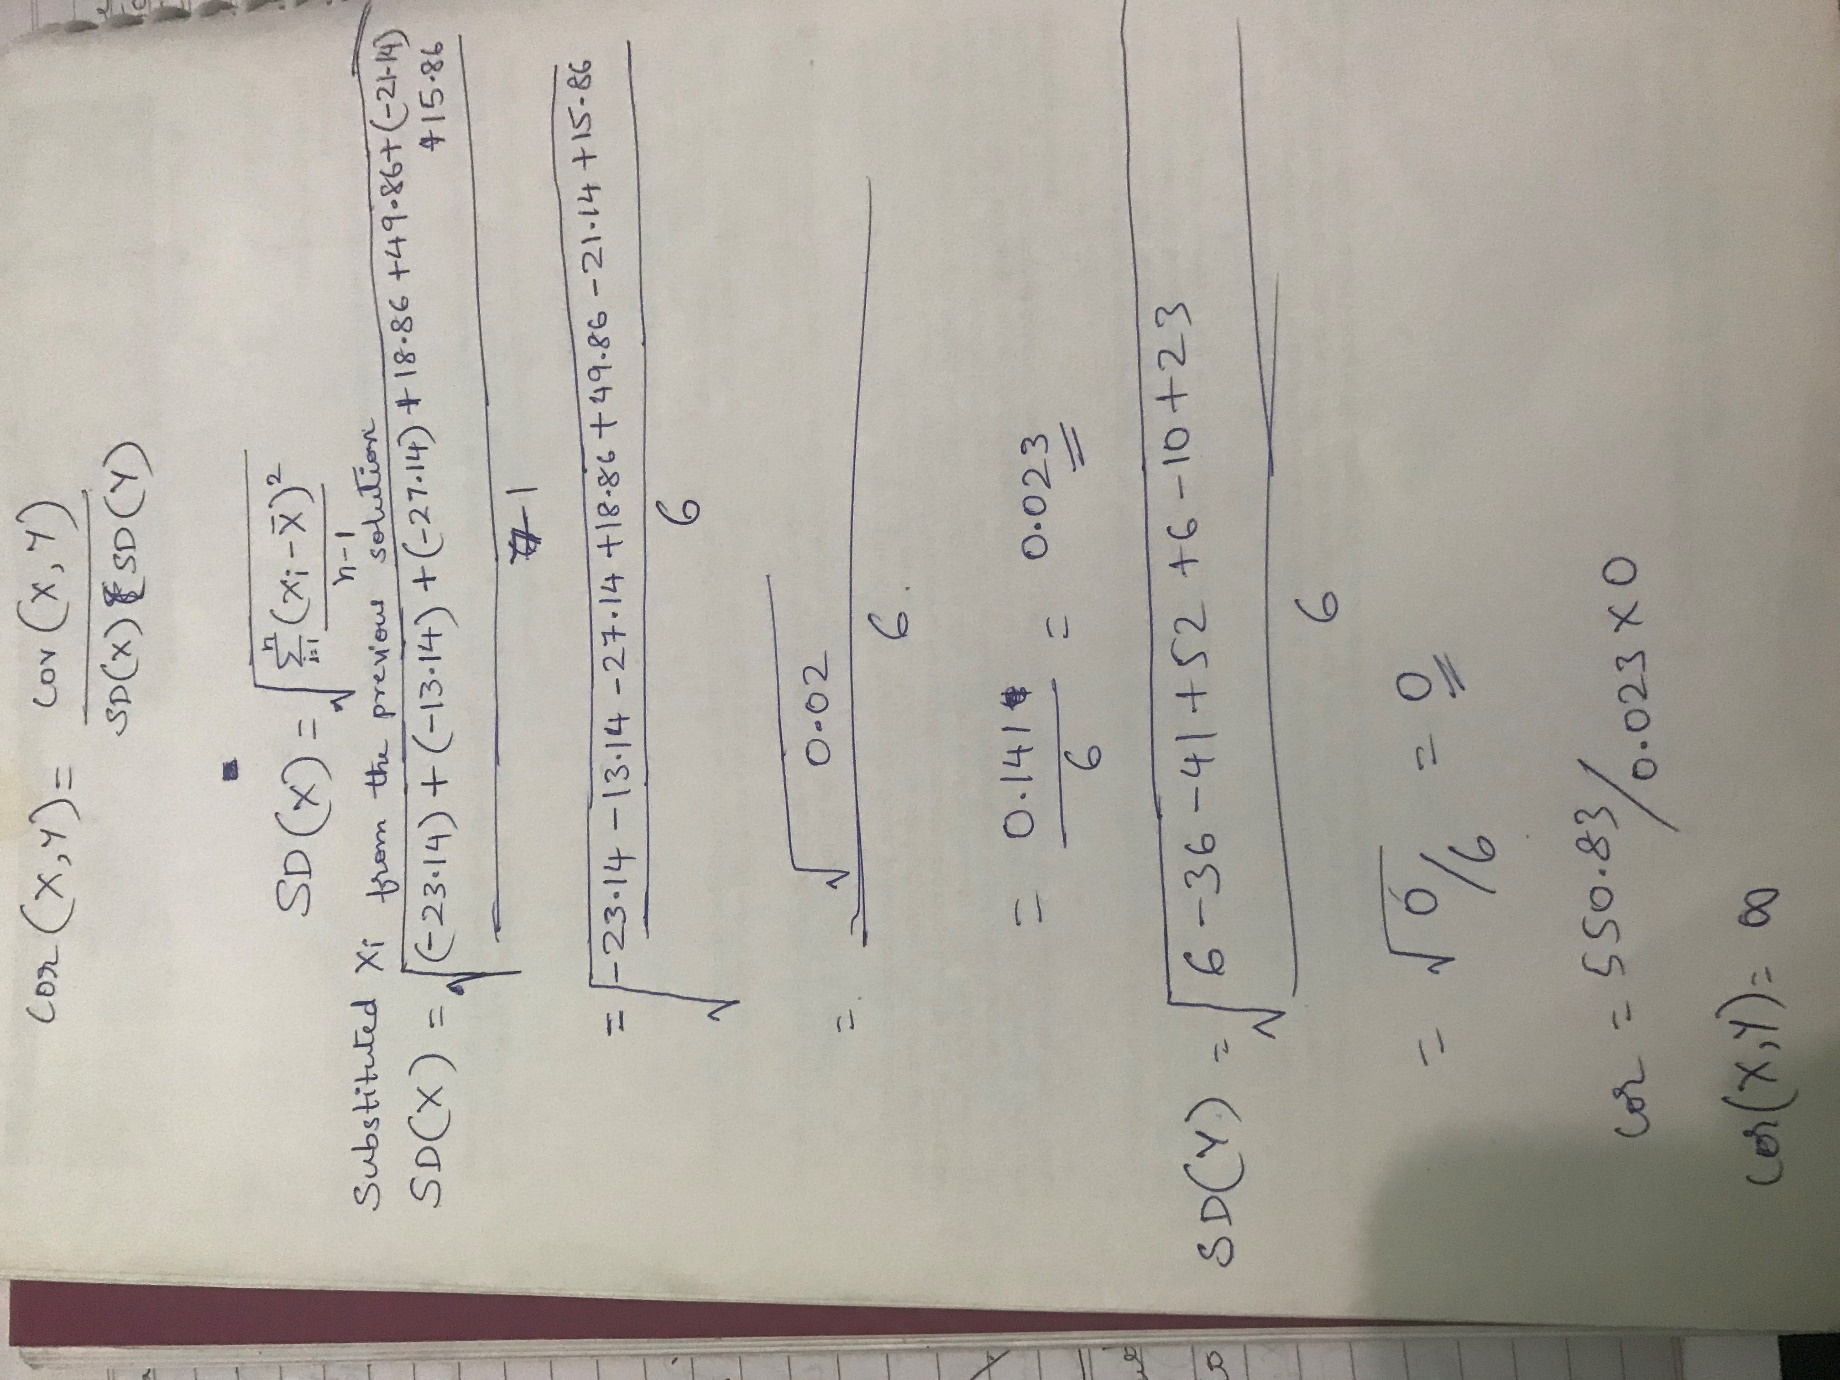 cor(x,y) = cov(x,y)
SD(x) SD(y)
SD(x) = √ Σ i=1 n (xi - x̄)²
n-1
Substituted xi from the previous solution
SD(x) = √ (-23.14) + (-13.14) + (-27.14) + 18.86 + 49.86 + (-21.14)
+ 15.86
7-1
= √ -23.14 - 13.14 - 27.14 + 18.86 + 49.86 - 21.14 + 15.86
6
= √ 0.02
6.
= 0.141 = 0.023
6
SD(y) = √ 6 - 36 - 41 + 52 + 6 - 10 + 23
6
= √0/6 = 0
cor = 550.83/0.023 x 0
cor(x,y) = ∞